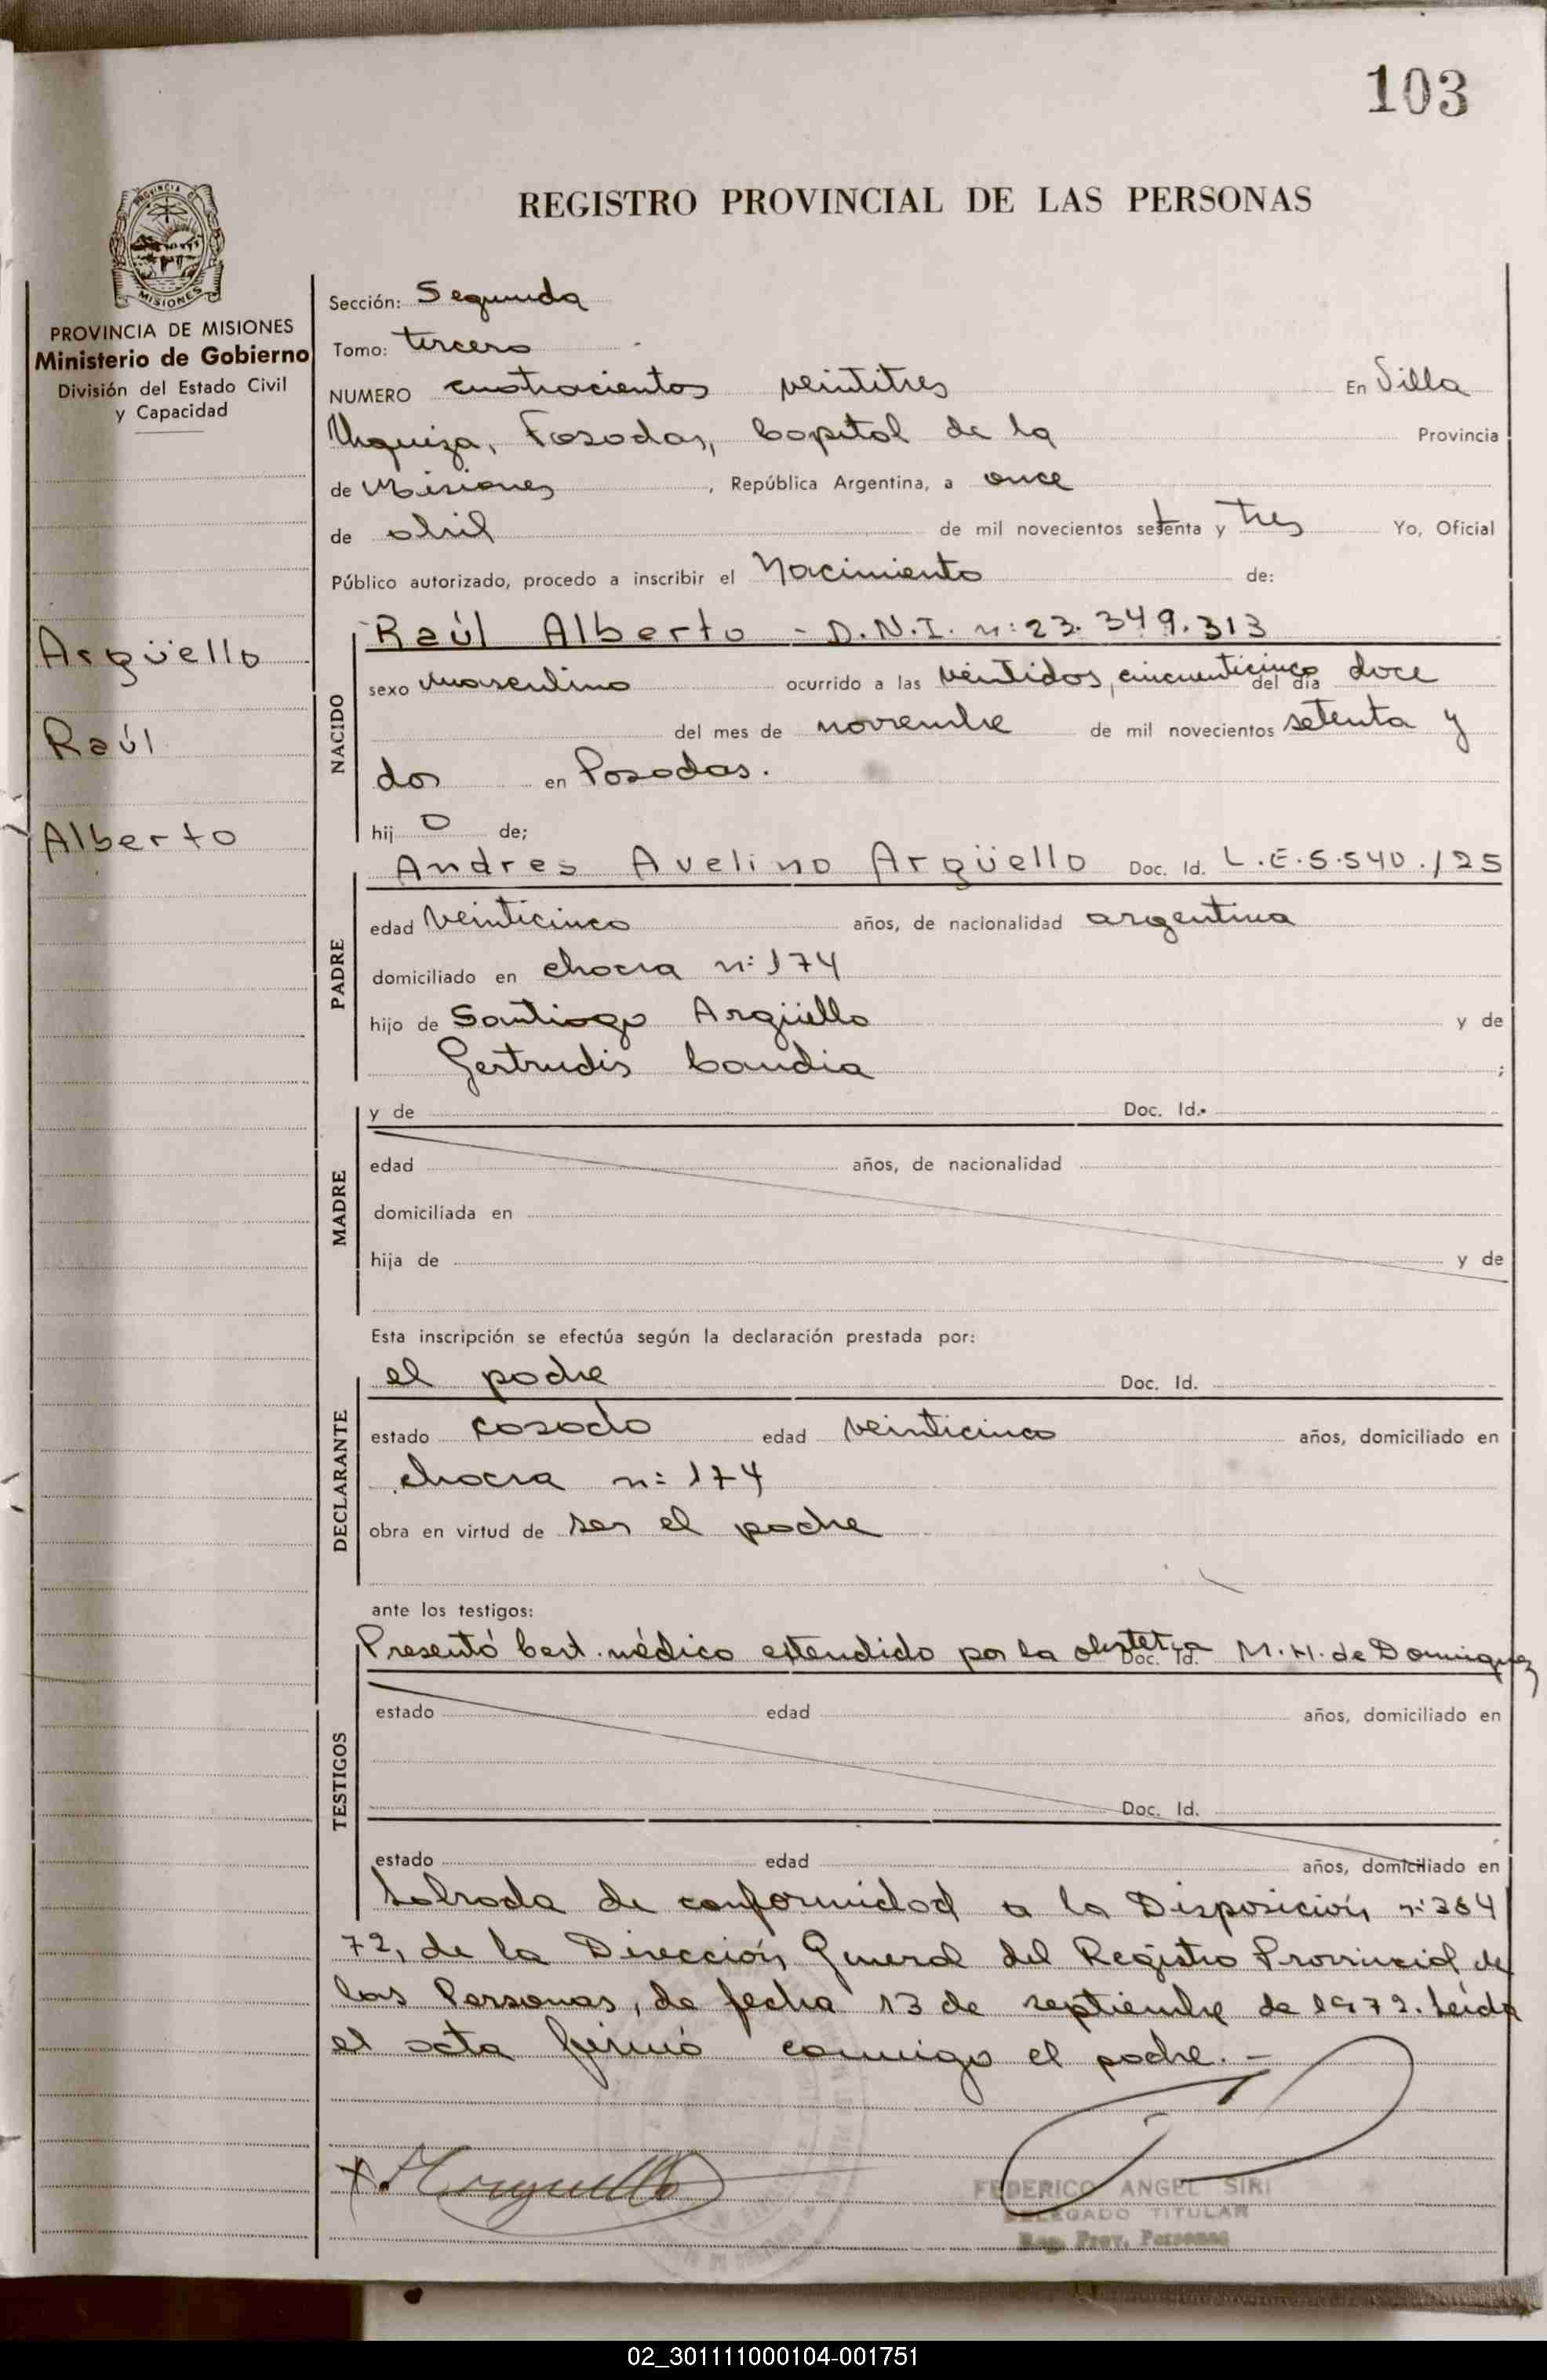 103
REGISTRO PROVINCIAL DE LAS PERSONAS
PROVINCIA DE MISIONES
Ministerio de Gobierno
División del Estado Civil
y Capacidad
Argüello
Raúl
Alberto
Sección: Segunda
Tomo: tercero
NUMERO cuatrocientos veintitres En Villa
Urquiza, Posadas, Capital de la Provincia
de Misiones, República Argentina, a once
de abril de mil novecientos setenta y tres Yo, Oficial
Público autorizado, procedo a inscribir el Nacimiento de:
NACIDO
Raúl Alberto - D.N.I. n: 23.349.313
sexo masculino ocurrido a las veintidos, cincuenticinco del día doce
del mes de noviembre de mil novecientos setenta y
dos en Posadas.
hij o de;
PADRE
Andres Avelino Argüello Doc. Id. L.E.5.540.125
edad veinticinco años, de nacionalidad argentina
domiciliado en chacra n: 174
hijo de Santiago Argüello y de
Gertrudis Candia ;
MADRE
y de Doc. Id.
edad años, de nacionalidad
domiciliada en
hija de y de
Esta inscripción se efectúa según la declaración prestada por:
DECLARANTE
el padre Doc. Id.
estado casado edad veinticinco años, domiciliado en
chacra n: 174
obra en virtud de ser el padre
ante los testigos:
TESTIGOS
Presentó Cert. médico extendido por la obstetra Doc. Id. M.H. de Dominguez
estado edad años, domiciliado en
Doc. Id.
estado edad años, domiciliado en
Labrada de conformidad a la Disposición n: 384
72, de la Dirección General del Registro Provincial de
las Personas, de fecha 13 de septiembre de 1972. Leída
el acta firmó conmigo el padre. -
FEDERICO ANGEL SIRI
DELEGADO TITULAR
Reg. Prov. Personas
02_301111000104-001751